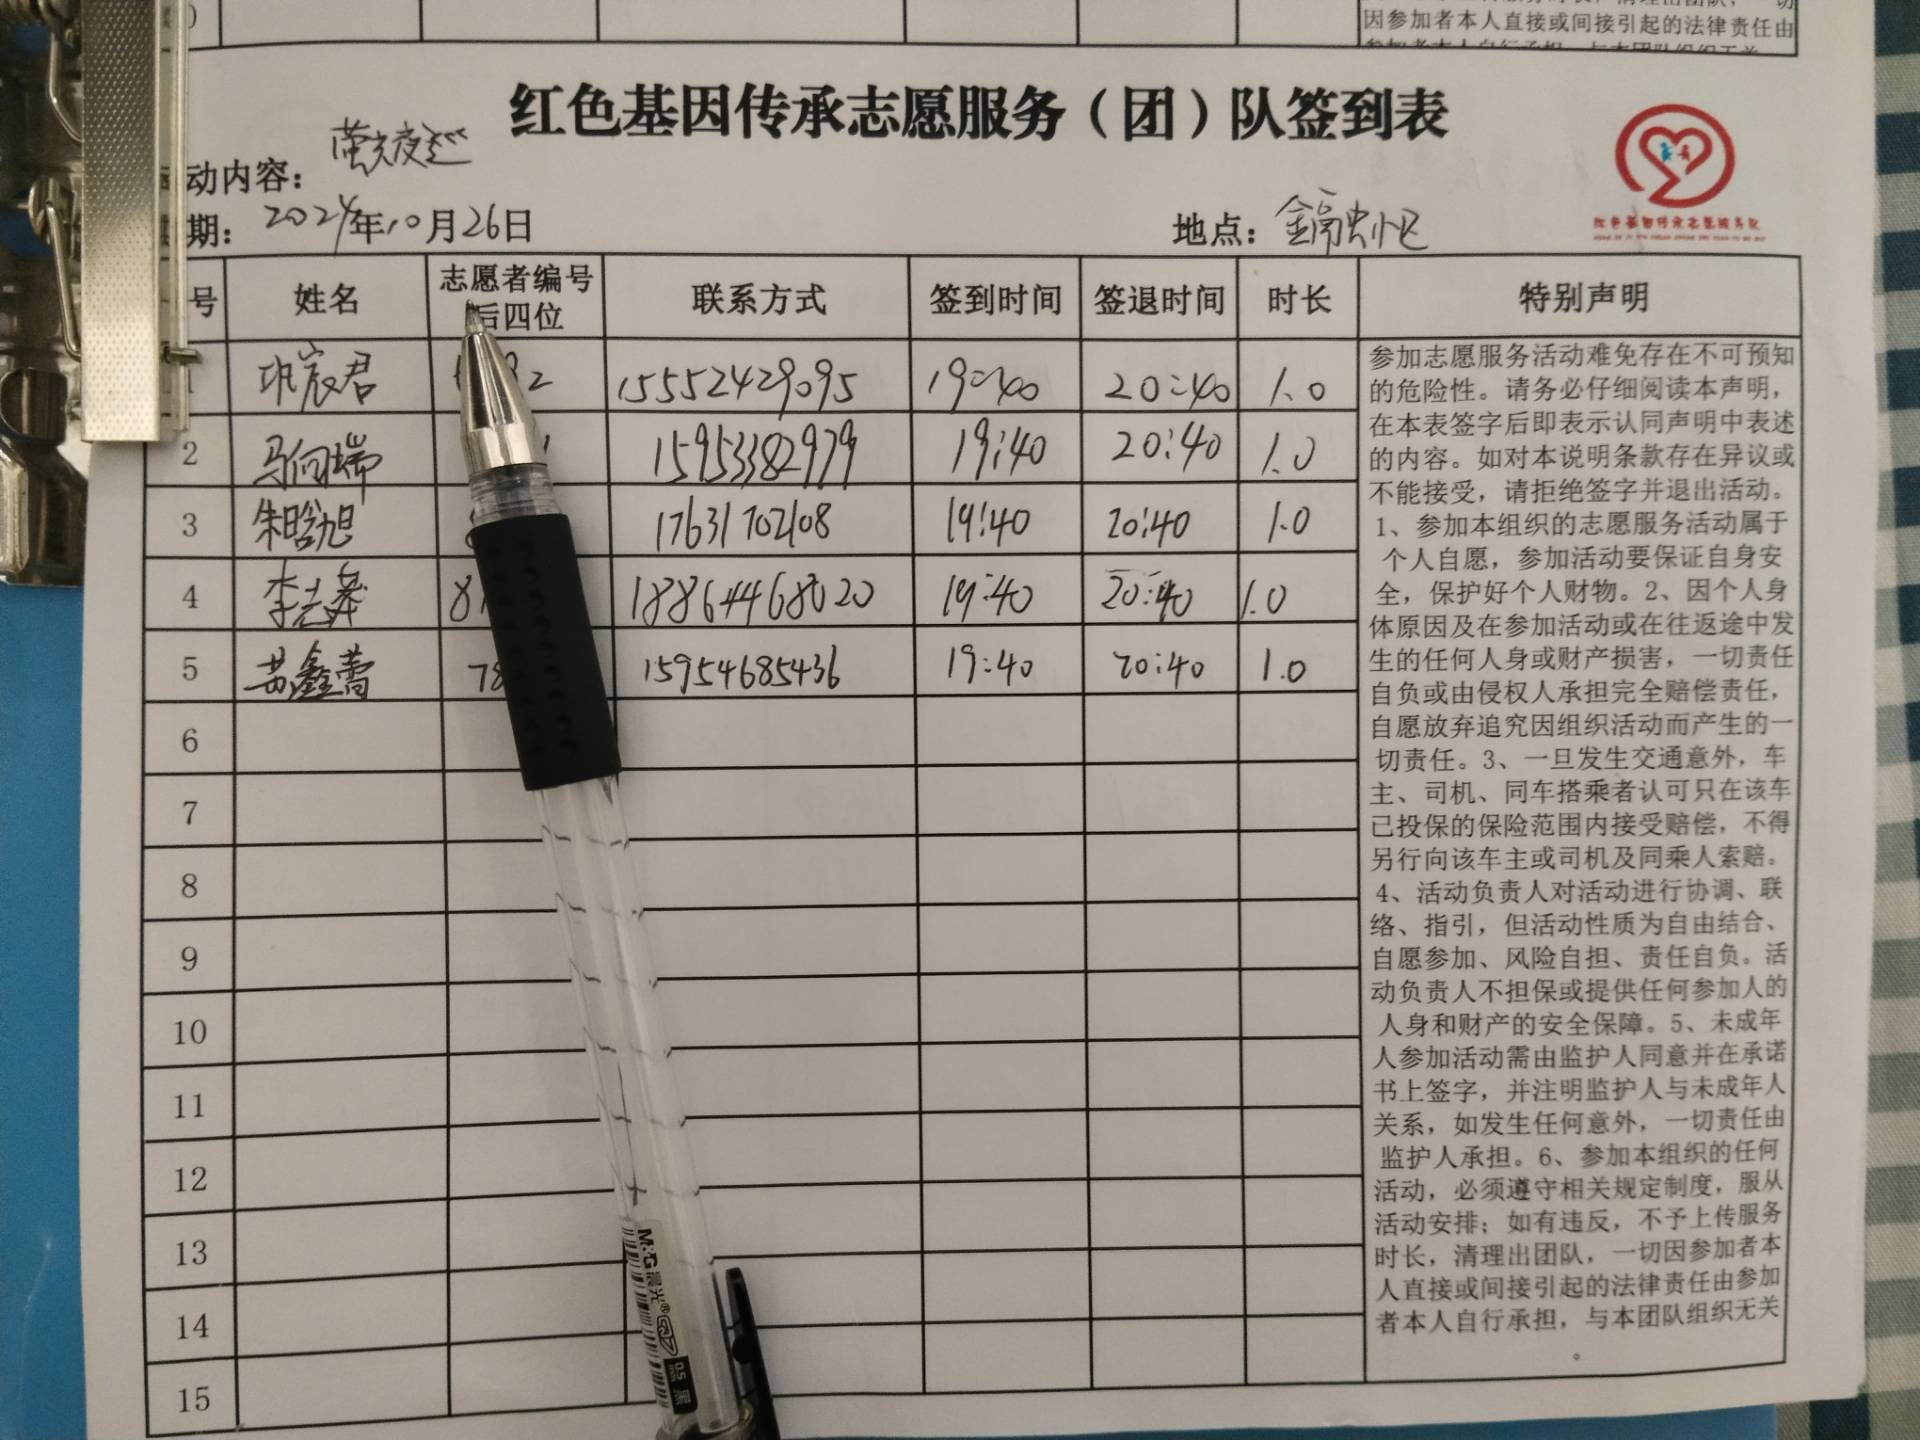 因参加者本人直接或间接引起的法律责任由
红色基因传承志愿服务（团）队签到表
动内容： 萤光夜巡
期： 2024年10月26日 地点：
红色基因传承志愿服务队
号 姓名 志愿者编号后四位 联系方式 签到时间 签退时间 时长 特别声明
辰君 2 15552429095 19:40 20:40 1.0
2 马向瑞 15953382979 19:40 20:40 1.0
3 朱晗旭 17631702108 19:40 20:40 1.0
4 李志 8 18864468020 19:40 20:40 1.0
5 苗鑫蕾 78 15954685436 19:40 20:40 1.0
6
7
8
9
10
11
12
13
14
15
参加志愿服务活动难免存在不可预知
的危险性。请务必仔细阅读本声明，
在本表签字后即表示认同声明中表述
的内容。如对本说明条款存在异议或
不能接受，请拒绝签字并退出活动。
1、参加本组织的志愿服务活动属于
个人自愿，参加活动要保证自身安
全，保护好个人财物。2、因个人身
体原因及在参加活动或在往返途中发
生的任何人身或财产损害，一切责任
自负或由侵权人承担完全赔偿责任，
自愿放弃追究因组织活动而产生的一
切责任。3、一旦发生交通意外，车
主、司机、同车搭乘者认可只在该车
已投保的保险范围内接受赔偿，不得
另行向该车主或司机及同乘人索赔。
4、活动负责人对活动进行协调、联
络、指引，但活动性质为自由结合、
自愿参加、风险自担、责任自负。活
动负责人不担保或提供任何参加人的
人身和财产的安全保障。5、未成年
人参加活动需由监护人同意并在承诺
书上签字，并注明监护人与未成年人
关系，如发生任何意外，一切责任由
监护人承担。6、参加本组织的任何
活动，必须遵守相关规定制度，服从
活动安排；如有违反，不予上传服务
时长，清理出团队，一切因参加者本
人直接或间接引起的法律责任由参加
者本人自行承担，与本团队组织无关
。
M&G晨光® Q7 0.5 黑